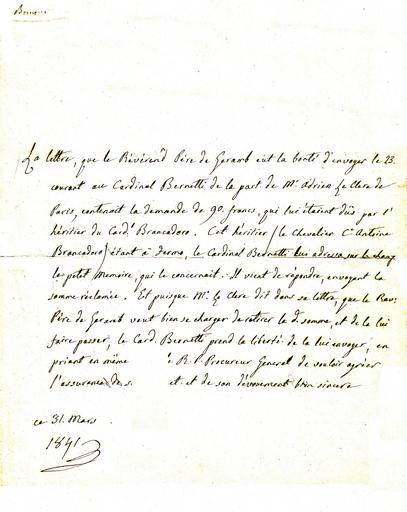 La lettre, que le Révérend Père de Geramb eut la bonté d'envoyer le 23.
courant au Cardinal Bernetti de la part de Mr. Adrien Le Clere de
Paris, contenait la demande de 90. francs, qui lui étaient dûs par l'
Héritier du Card.l Brancadoro. Cet héritier (le Chevalier Cte Antoine
Brancadoro) étant à Fermo, le Cardinal Bernetti lui adressa sur le champ
le petit Mémoire, qui le concernait. Il vient de répondre, envoyant la
somme réclamée. Et puisque Mr. Le Clere dit dans sa lettre, que le Rev.
Père de Geramb veut bien se charger de retirer la d. somme, et de la lui
faire passer, le Card. Bernetti prend la liberté de la lui envoyer, en
priant en même le R. P. Procureur General de vouloir agréer
l'assurance de s. et de son dévouement bien sincère
ce 31. Mars
1841